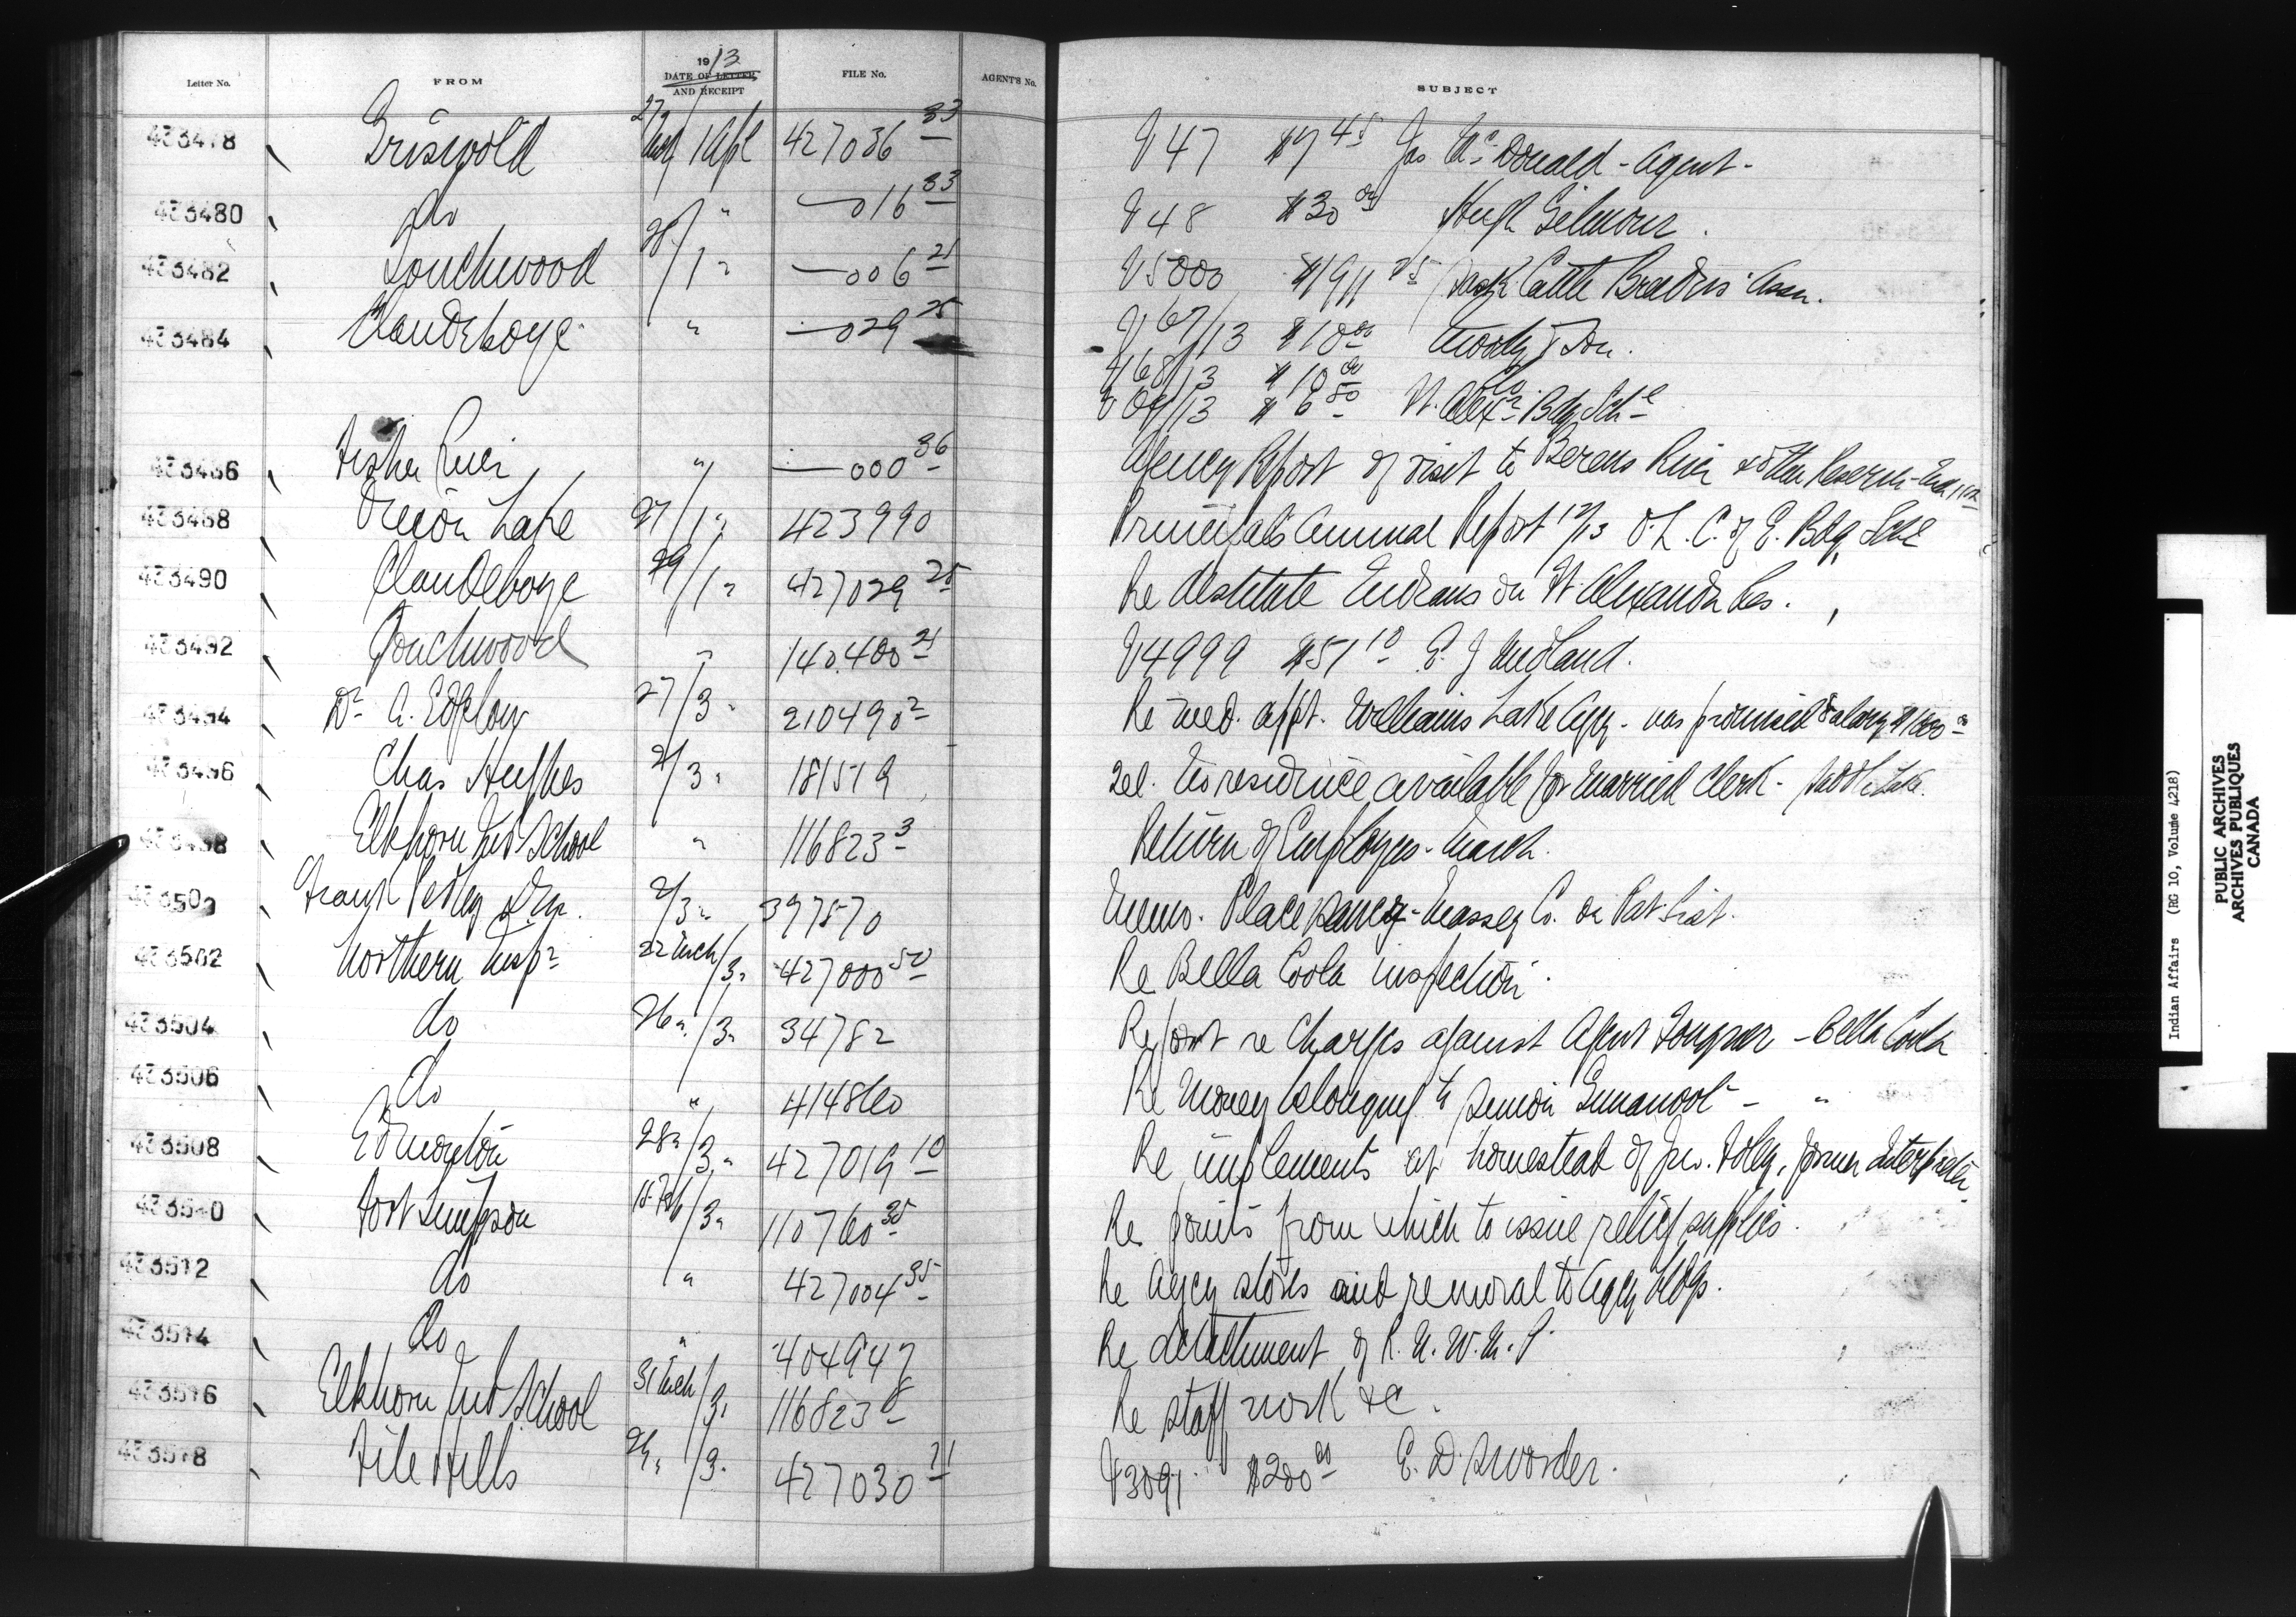 Letter No. FROM 1913 DATE OF LETTER AND RECEIPT FILE No. AGENT'S No. SUBJECT
433478 Griswold 27 Mch 1 Apl 427036 33 V 47 $7 45 Jas. McDonald - Agent -
433480 do " —016 33 V 48 $30 00 Hugh Gilmour.
433482 Touchwood 28/1 " —006 21 V 5000 Sask Cattle Breeders Assn.
433484 Clandeboye " —029 25 V 67/13 $10 00 Moody & Son.
V 68/13 $10 00 do
V 69/13 $6 80 Bdg Schl
433486 Fisher River " —000 36 Agency Report of visit to Berens River & other Reserves
433488 Onion Lake 27/1 " 423990 Principal's Annual Report 12/13 O.L. C. of E. Bdg Schl
433490 Clandeboye 29/1 " 427029 25 Re destitute Indians on St. Alexander Res.
433492 Touchwood " 140.400 21 V 4999 $51 10 E. J. Midland.
433494 Dr. A. 27/3 " 210490 2 Re med. appt. Williams Lake Agcy - was promised salary
433496 Chas Hughes 2/3 " 181519 Tel. No residence available for married clerk -
433498 Elkhorn Ind School " 116823 3 Return of Employees - March.
433500 Frank Pedley 2/3 " 397870 Memo. Place Massey Co. on Pat. List.
433502 Northern Inspr 22 Mch/3 " 427000 50 Re Bella Coola inspection.
433504 do 26 "/3 " 34782 Report re Charges against Agent Fougner - Bella Coola
433506 do " 414860 Re Money belonging to Simon Gunanoot - "
433508 Edmonton 28 "/3 " 427019 10 Re implements at homestead of Foley, former Interpreter
433510 Fort Simpson 18 Feb/3 " 110760 35 Re points from which to issue relief supplies.
433512 do " 427004 35 Re Agcy stores and removal to Agcy bldgs.
433514 do " 404947 Re detachment of R.N.W.M.P.
433516 Elkhorn Ind School 31 Mch/3 " 116823 8 Re staff work &c.
433518 File Hills 29 "/3 " 427030 21 V 3091 $200 00 E. D. Sworder.
Indian Affairs (RG 10, Volume 4218)
PUBLIC ARCHIVES
ARCHIVES PUBLIQUES
CANADA